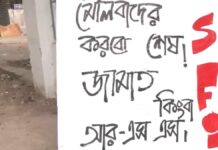 মৌলবাদের
করবো শেষ!
জামাত
কিংবা
আর-এস এস।
SF!